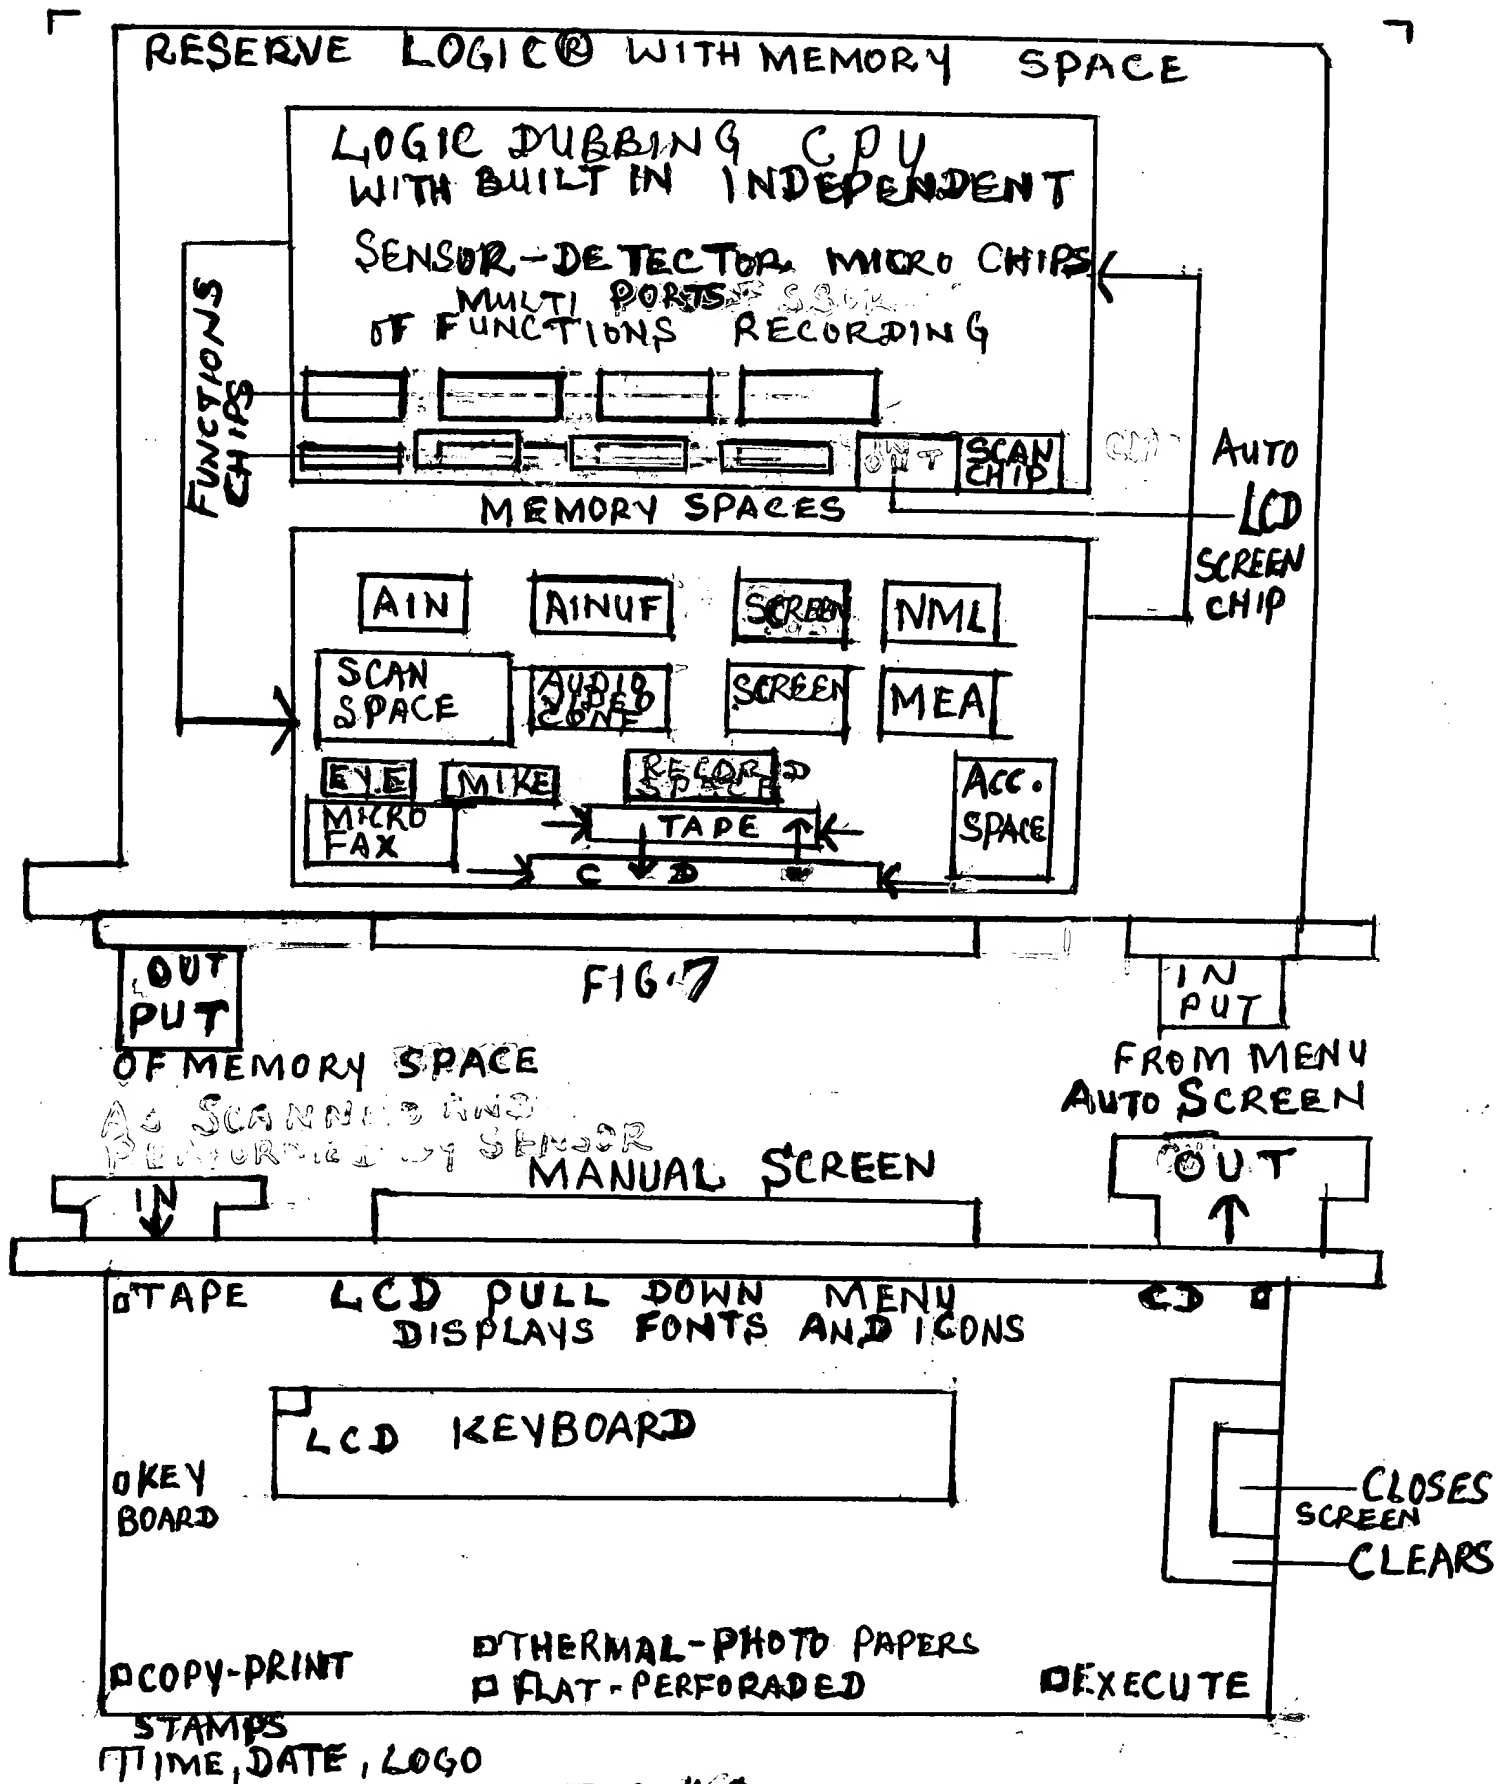 RESERVE LOGIC® WITH MEMORY SPACE
LOGIC DUBBING CPU
WITH BUILT IN INDEPENDENT
SENSOR-DETECTOR MICRO CHIPS
MULTI PORTS
OF FUNCTIONS RECORDING
FUNCTIONS
CHIPS
SCAN
CHIP
AUTO
LCD
SCREEN
CHIP
MEMORY SPACES
AIN
AINUF
SCREEN
NML
SCAN
SPACE
AUDIO
VIDEO
CONF
SCREEN
MEA
EYE
MIKE
RECORD
SPACE
ACC.
SPACE
MICRO
FAX
TAPE
CD
OUT
PUT
FIG.7
IN
PUT
OF MEMORY SPACE
FROM MENU
AUTO SCREEN
AS SCANNED AND
PERFORMED BY SENSOR
MANUAL SCREEN
IN
OUT
TAPE
LCD PULL DOWN MENU
CD
DISPLAYS FONTS AND ICONS
LCD KEYBOARD
KEY
BOARD
CLOSES
SCREEN
CLEARS
THERMAL-PHOTO PAPERS
COPY-PRINT
FLAT-PERFORADED
EXECUTE
STAMPS
TIME, DATE, LOGO